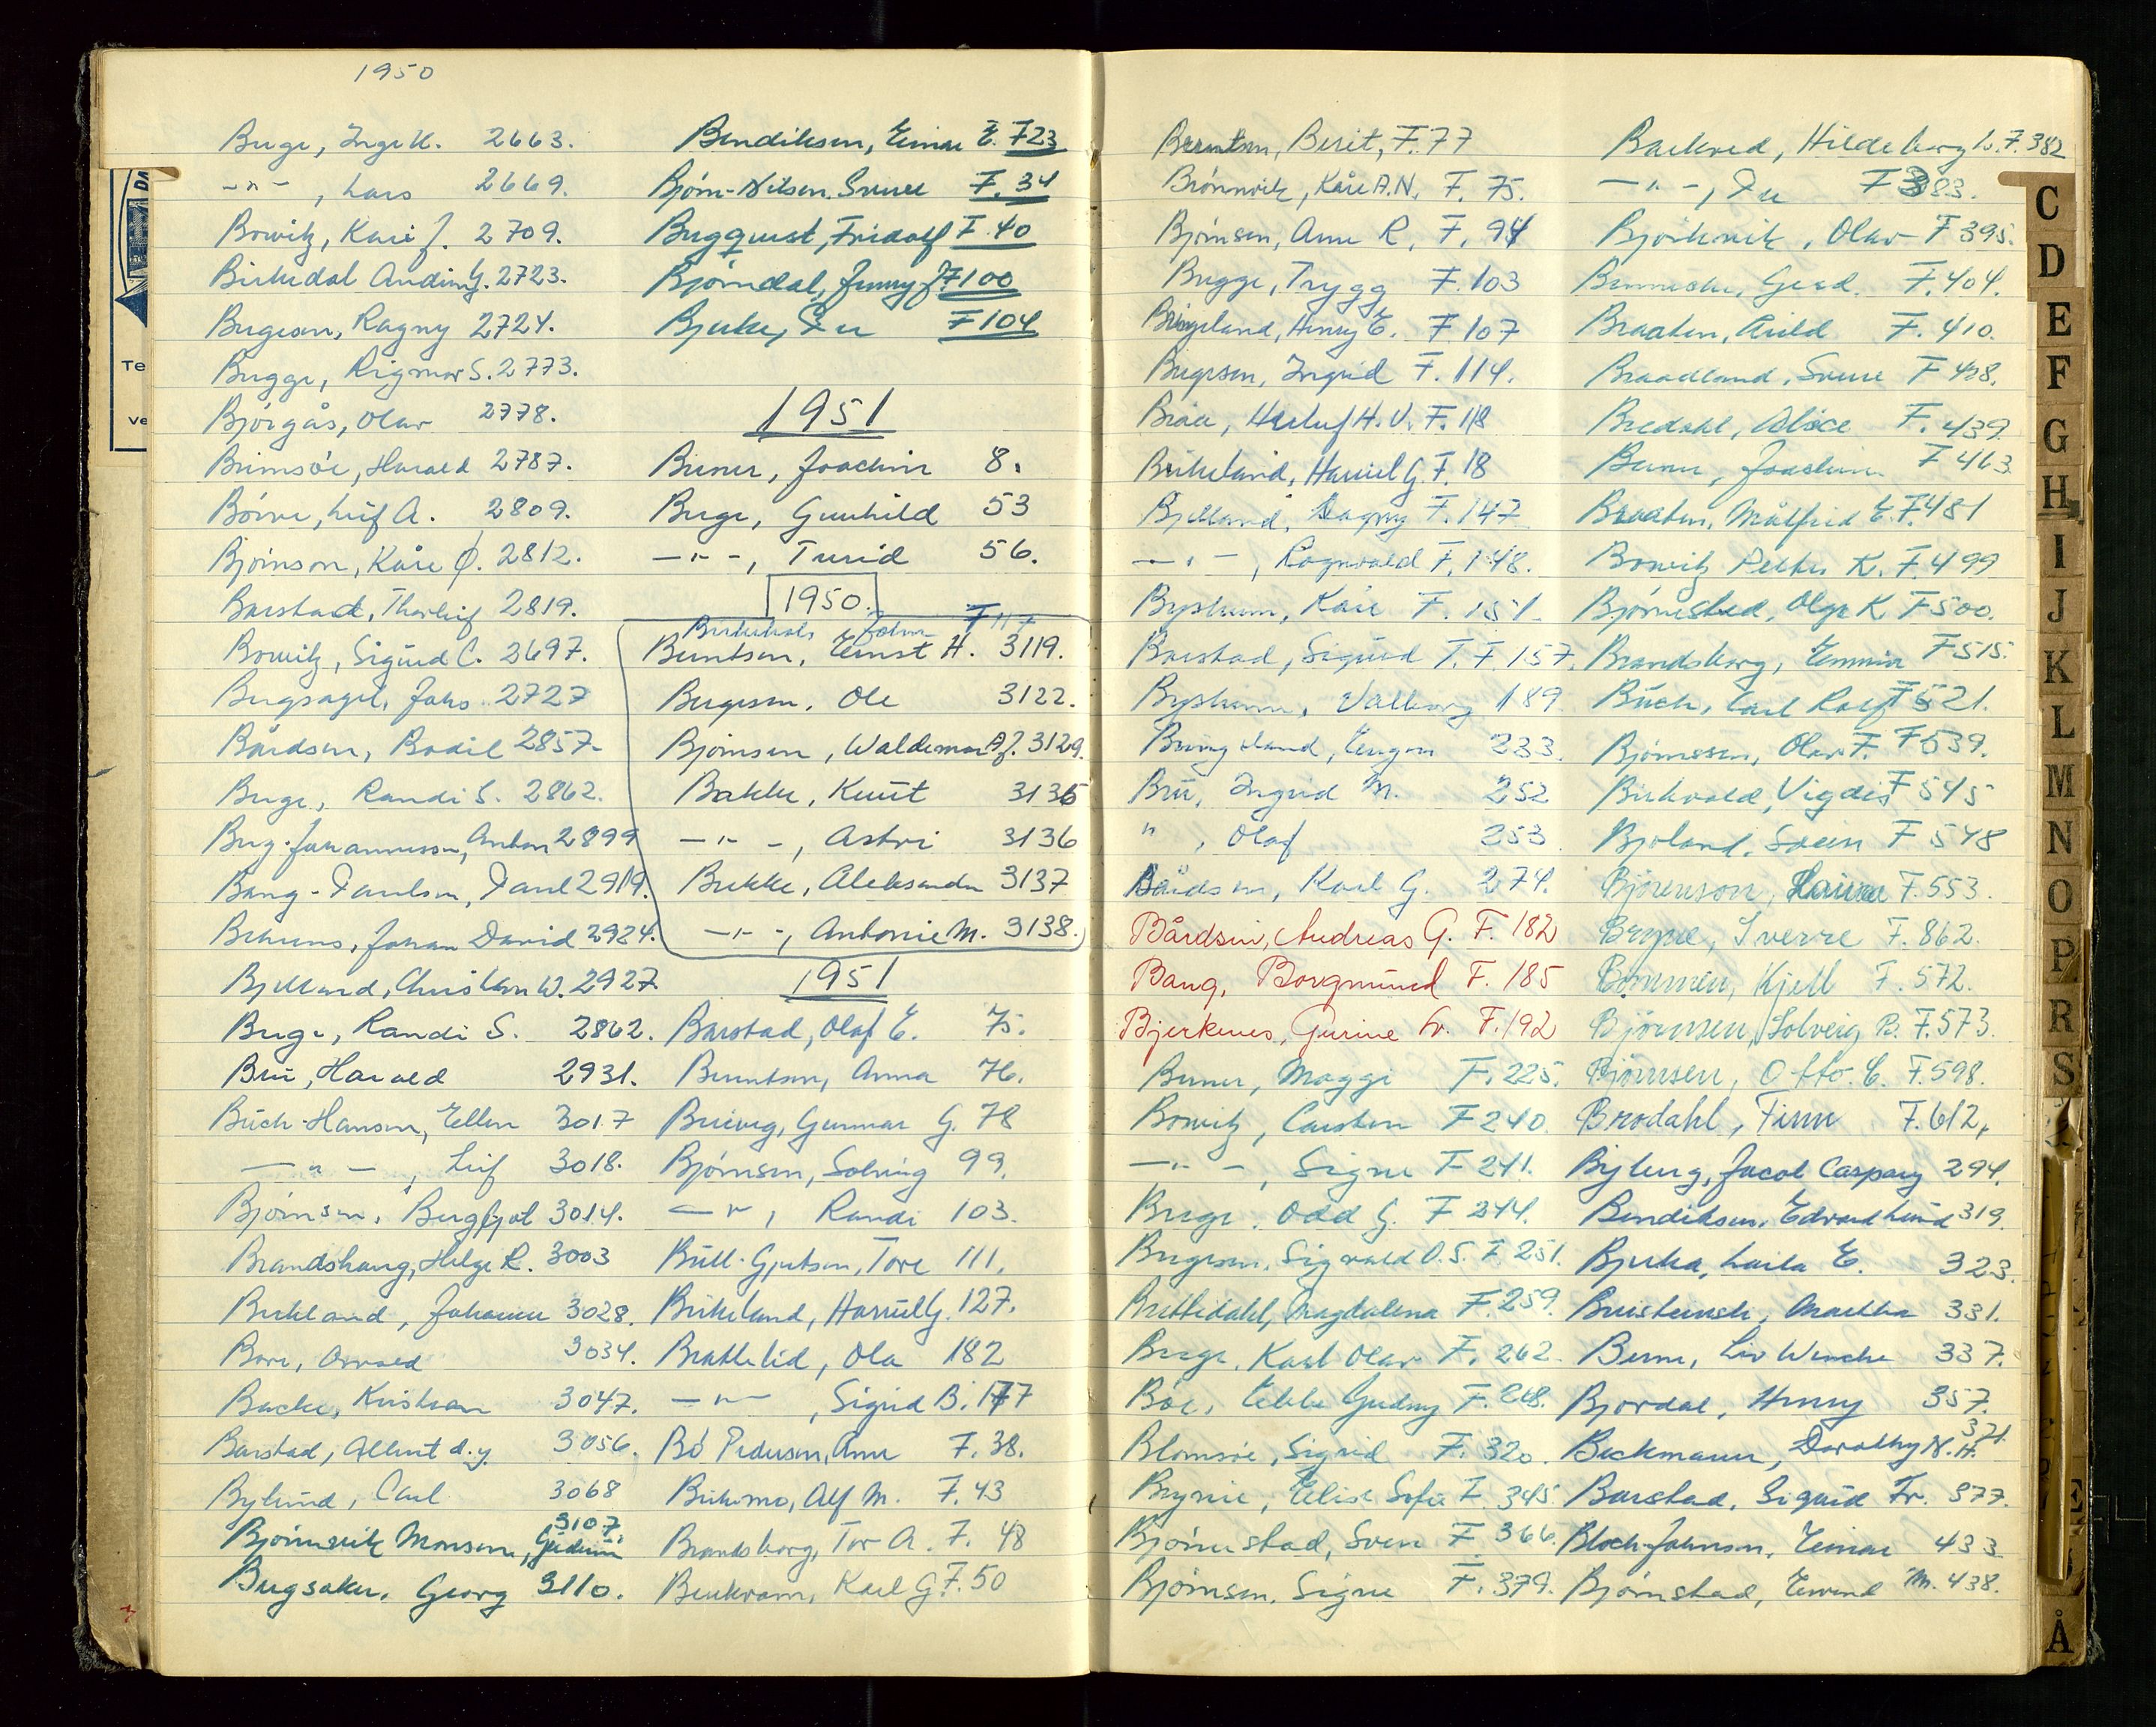 1950
Berge, Inge K. 2663.
-"- , Lars 2669.
Bowitz, Kari J. 2709.
Birkedal G. 2723.
Bergesen, Ragny 2724.
Bugge, Rigmor S. 2773.
Bjørgås, Olav 2778.
Brimsøe, Harald 2787.
Børve, Leif A. 2809.
Bjørnson, Kåre Ø. 2812.
Barstad, Thorleif 2819.
Bowitz, Sigurd C. 2697.
Bergsagel, Johs. 2727
Bårdsen, Bodil 2857.
Berge, Randi S. 2862.
Berg-Johannessen, Anton 2899
Bang-Paulsen, Paul 2919.
Behrens, Johan David 2924.
Bjelland, Christian W. 2927.
Berge, Randi S. 2862.
Bru, Harald 2931.
Buch-Hansen, Ellen 3017
-"- , Leif 3018.
Bjørnsen, Bergljot 3014.
Brandshaug, Helge R. 3003
Birkeland, Johanne 3028.
Bore, Osvald 3034.
Backe, Kristian 3047.
Barstad, Albert d.y. 3056.
Bylund, Carl 3068
3107.
Bjørnevik Monsen, Gudrun
Bergsaker, Georg 3110.
Bendiksen, Einar E. F23
Bjørn-Nilsen, Sverre F. 34
Bergquist, Fridolf F. 40
Bjørndal, Jenny J. F100
Bjerke, Per F104
1951
Berner, Joachim 8.
Berge, Gunhild 53
-"- , Turid 56.
1950.
John F117
Berntsen, Ernst H. 3119.
Bergesen, Ole 3122.
Bjørnsen, Waldemar A.J. 3129.
Bakke, Knut 3135
-"- , Astri 3136
Bekke, Aleksander 3137
-"- , Antonie M. 3138.
1951
Barstad, Olaf E. 75.
Berntsen, Anna 76.
Breivig, Gunnar G. 78
Bjørnsen, Solveig 99.
-"- , Randi 103.
Bull-Gjertsen, Tore 111.
Birkeland, Harriet G. 127.
Brattelid, Ola 182
-"- , Sigrid B. 177
Bö Pedersen, Anne F. 38.
Birkemo, Alf M. F. 43
Brandsberg, Tor A. F. 48
Karl G. F. 50
Berntsen, Berit, F. 77
Brønnvik, Kåre A.N. F. 75.
Bjørnsen, Arne R. F. 94
Bugge, Trygg F. 103
Bringeland, Henry E. F. 107
Bergesen, Ingrid F. 114.
Braa, Herluf H. V. F. 118
Birkeland, Harriet G. F. 18
Bjelland, Dagny F. 147
-"- , Ragnvald F. 148.
Bysheim, Kåre F. 151.
Barstad, Sigurd T. F. 157.
Bysheim, Valborg 189
Bringeland, Eugen 233.
Bru, Ingrid M. 252
" , Olaf 253.
Bårdsen, Karl G. 274.
Bårdsen, Andreas G. F. 182
Bang, Borgmund F. 185
Bjerknes, Gurine Lv. F. 192
Berner, Maggi F. 225.
Bowitz, Carsten F 240.
-"- , Signe F 241.
Berge, Odd G. F 244.
Bergesen, Sigvald O.S. F. 251.
Brettedahl, Magdalena F. 259.
Berge, Karl Olav F. 262.
Böe, Ebba Gudny F. 268.
Blomsøe, Sigrid F. 320.
Bryne, Elise Sofie F. 345.
Bjørnestad, Sven F 366.
Bjørnsen, Signe F. 379.
Barkved, Hildeborg L. F. 382
-"- , Per F 383.
Bjørkevik, Olav F 395.
Gerd F. 404.
Braaten, Arild F. 410.
Braadland, Sverre F 428.
Bredahl, Alice F. 439
Berner, Joachim F 463.
Braaten, Målfrid E. F. 481
Bowitz Petter K. F. 499
Bjørnestad, Olga K. F 500.
Brandsberg, Emmin F 515.
Buch, Carl Rolf F 521.
Bjørnssen, Olav F. F 539.
Birkvold, Vigdis F 545
Bjoland, Svein F 548
Bjørnson, F. 553.
Bryne, Sverre F. 862.
Brommen, Kjell F. 572.
Bjørnsen, Solveig B. F. 573.
Bjørnsen, Otto. C. F. 598.
Brodahl, Finn F. 612.
Byberg, Jacob Caspary 294.
Bendiksen, Edvard Lund 319.
Bjerka, Laila E. 323.
Breistensk, Martha 331.
Berner, Liv Wenche 337.
Bjordal, Henry 357.
371.
Beckmann, Dorothy N. H.
Barstad, Sigurd Fr. 377.
Bloch-Johnsen, Einar 433
Bjørnstad, Eivind M. 438.
C
D
E
F
G
H
I
J
K
L
M
N
O
P
R
S
Å
DA
Te
ve